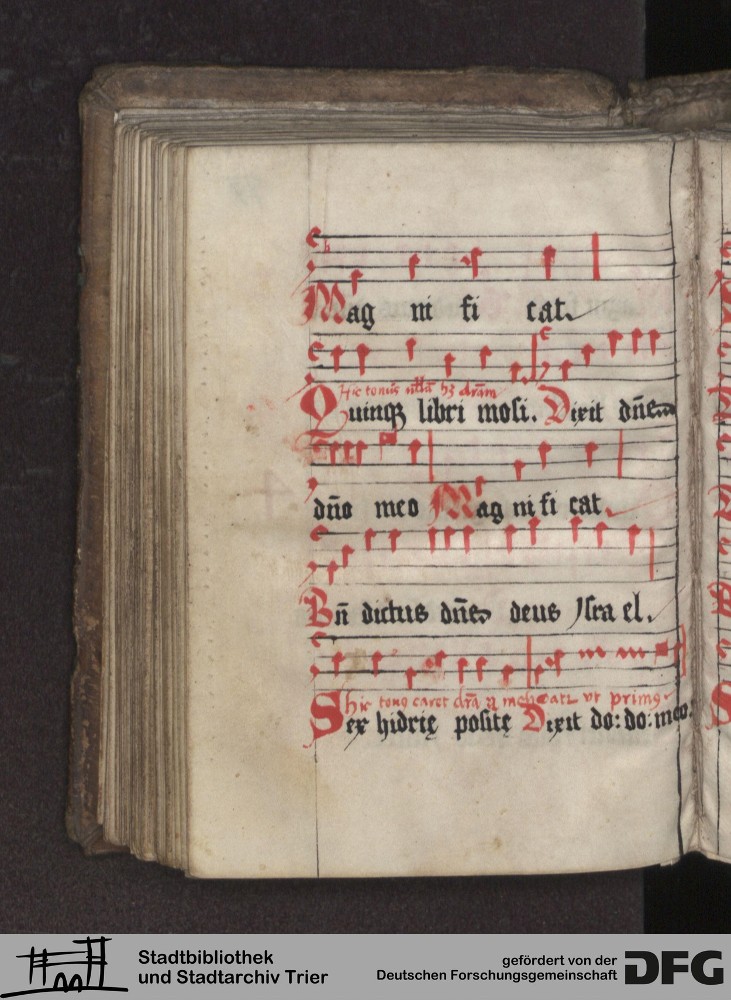 Mag ni fi cat.
Hic tonus nullā hꝫ drām
Quinqꝫ libri moſi. Dixit dn̄s
dn̄o meo Mag ni fi cat.
Bn̄ dictus dn̄s deus Iſra el.
hic tonꝰ caret drā ut primꝰ
Sex hidrię poſitę Dixit do: do: meo.
Stadtbibliothek
und Stadtarchiv Trier
gefördert von der
Deutschen Forschungsgemeinschaft
DFG